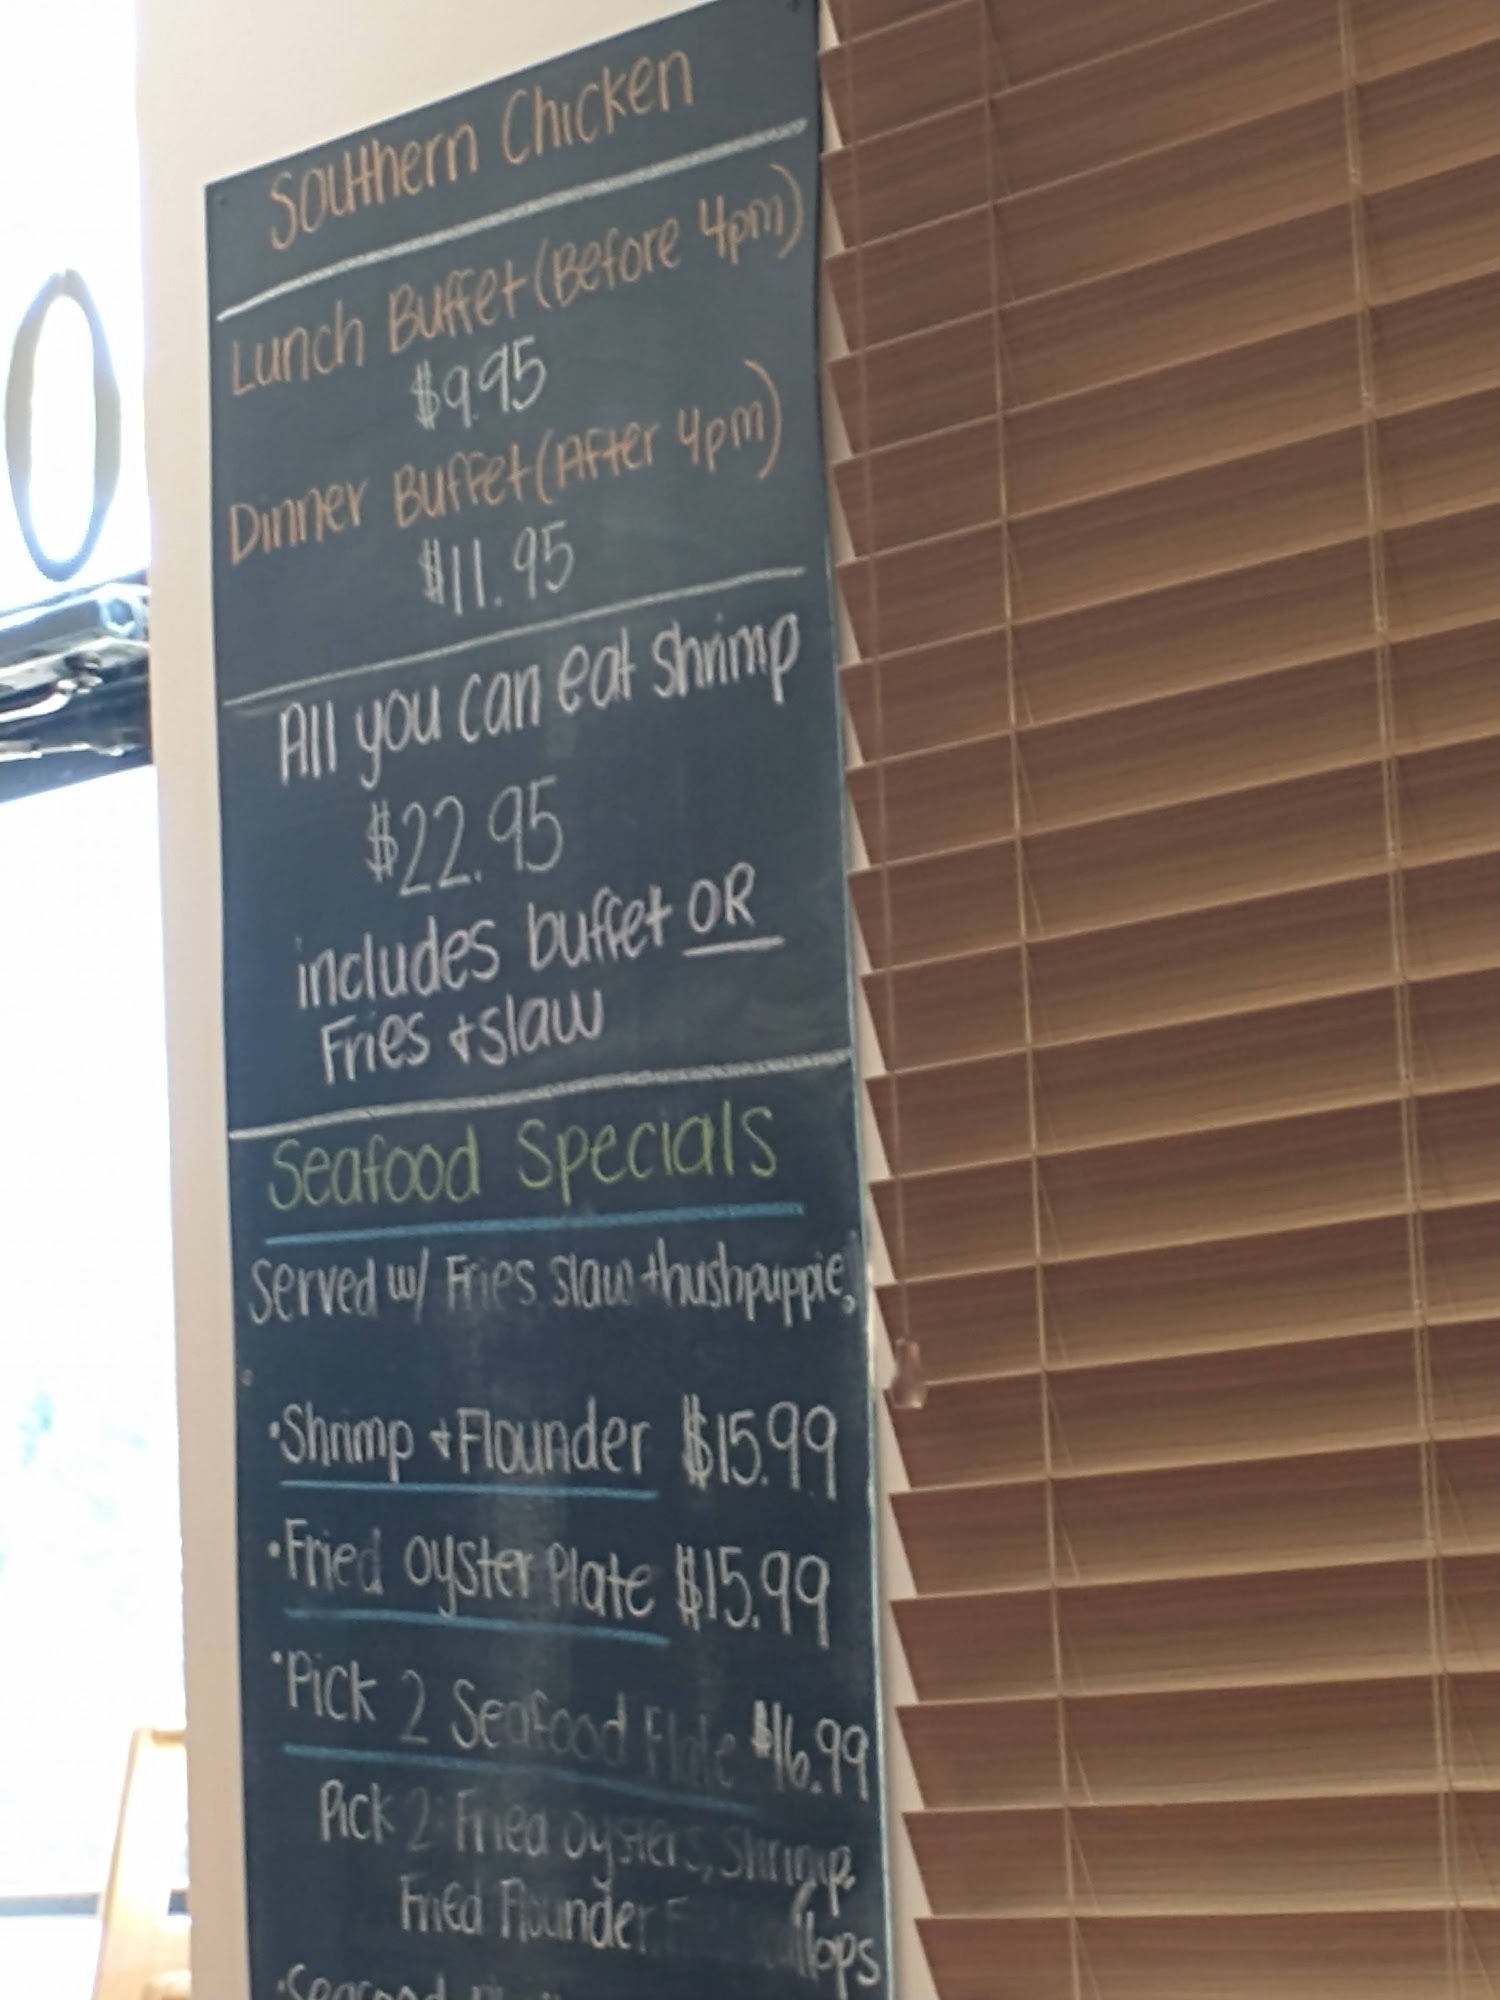 Southern Chicken
Lunch Buffet (Before 4pm)
$9.95
Dinner Buffet (After 4pm)
$11.95
All you can eat shrimp
$22.95
includes buffet OR
Fries + slaw
Seafood Specials
Served w/ Fries slaw + hushpuppies
• Shrimp + Flounder $15.99
• Fried oyster Plate $15.99
• Pick 2 Seafood Plate $16.99
Pick 2 Fried oysters, Shrimp,
Fried Flounder
• Seafood